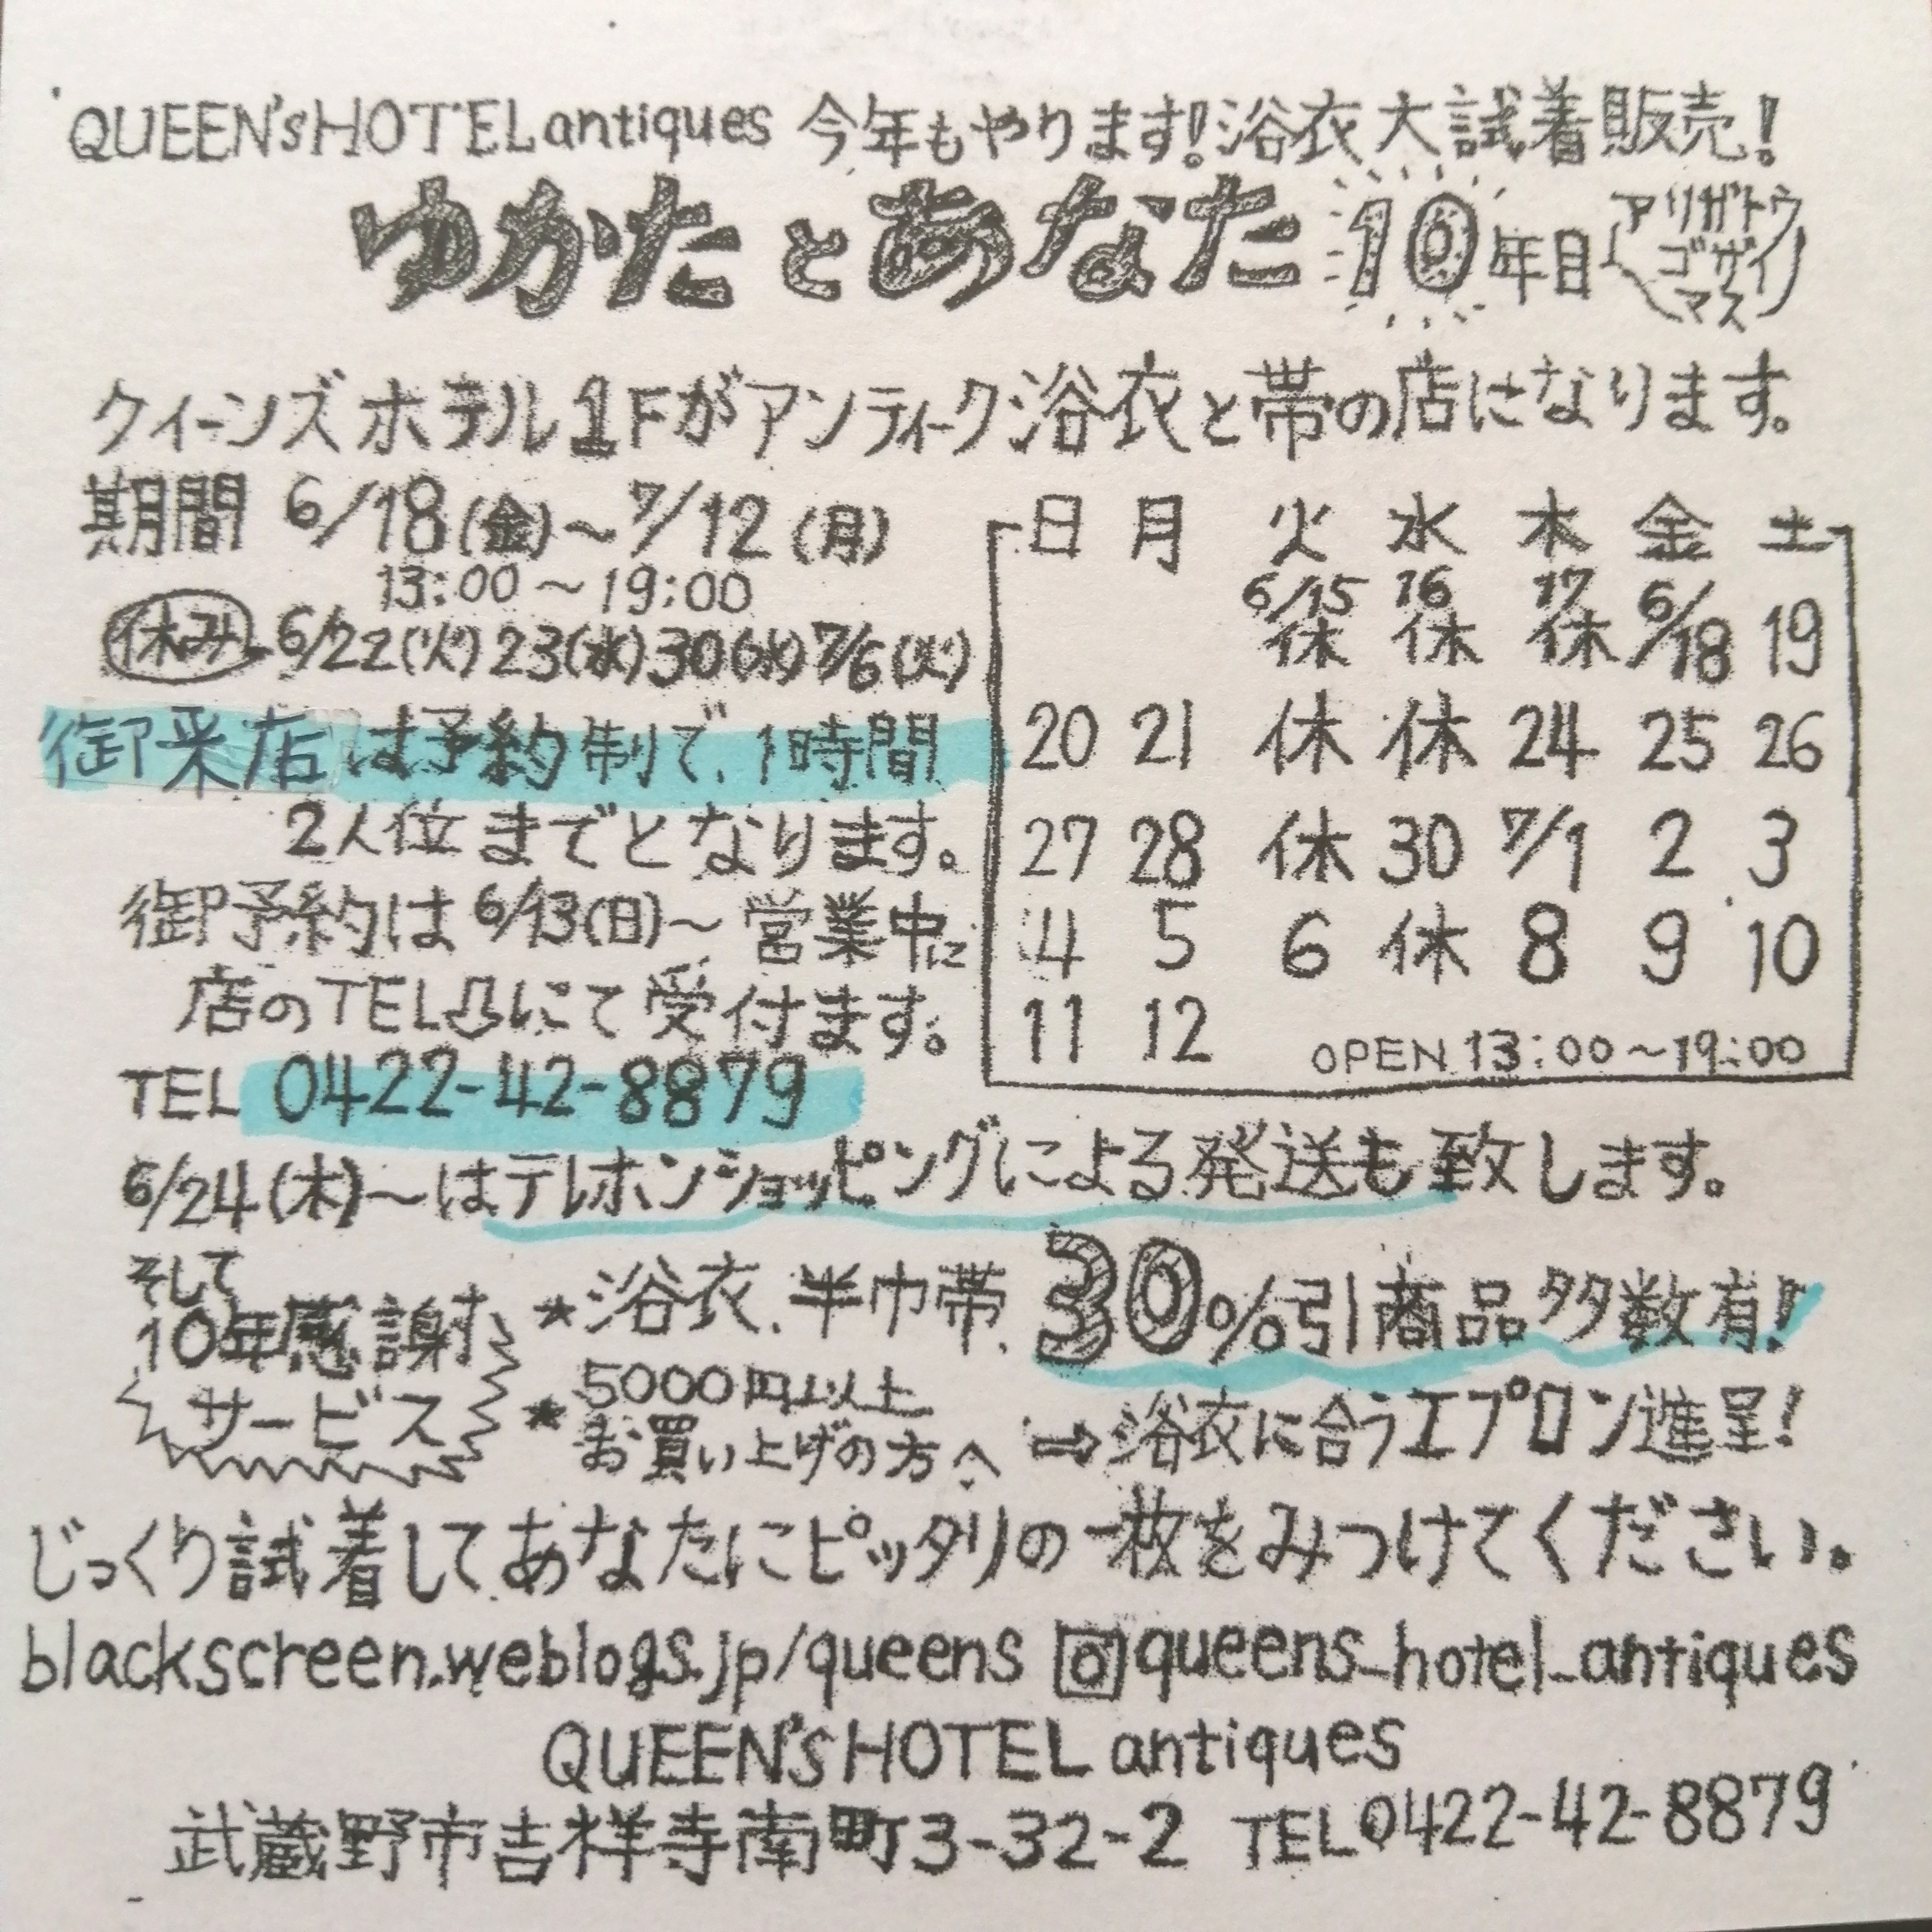 QUEEN'S HOTEL antiques 今年もやります!浴衣大試着販売!
ゆかたとあなた 10年目 アリガトウゴザイマス
クィーンズホテル1Fがアンティーク浴衣と帯の店になります。
期間 6/18(金)~7/12(月)
13:00~19:00
休み 6/22(火)23(水)30(水)7/6(火)
御来店は予約制で、1時間
2人位までとなります。
御予約は6/13(日)~営業中に
店のTEL⇩にて受付ます。
TEL 0422-42-8879
日 月 火 水 木 金 土
6/15休 16休 17休 6/18 19
20 21 休 休 24 25 26
27 28 休 30 7/1 2 3
4 5 6 休 8 9 10
11 12 OPEN 13:00~19:00
6/24(木)~はテレホンショッピングによる発送も致します。
そして
10年感謝
サービス
★浴衣、半巾帯、30%引商品多数有!
★5000円以上
お買い上げの方へ⇨浴衣に合うエプロン進呈!
じっくり試着してあなたにピッタリの一枚をみつけてください。
blackscreen.weblogs.jp/queens queens_hotel_antiques
QUEEN'S HOTEL antiques
武蔵野市吉祥寺南町3-32-2 TEL 0422-42-8879